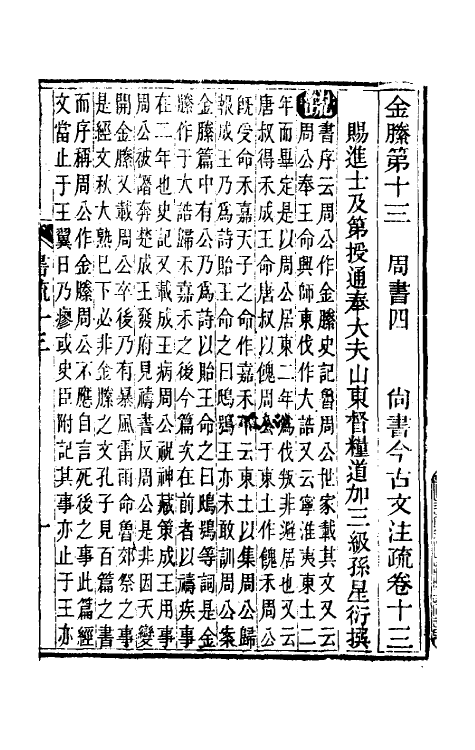 金縢第十三　周書四　尚書今古文注疏卷十三
賜進士及第授通奉大夫山東督糧道加三級孫星衍撰
疏書序云周公作金縢史記魯周公世家載其文又云
周公奉王命興師東伐作大誥又云寧淮夷東土二
年而畢定是以周公居東二年為伐叛非避居也又云
唐叔得禾成王命唐叔以餽周公于東土作餽禾周公
旣受命禾嘉天子之命作嘉禾東土以集周公歸
報成王乃為詩貽王命之曰鴟鴞王亦未敢訓周公案
金縢篇中有公乃為詩以貽王命之曰鴟鴞等詞是金
縢作于大誥歸禾嘉禾之後今篇次在前者以禱疾事
在二年也史記又載成王病周公祝神藏策成王用事
周公被譖奔楚成王發府見禱書反周公是非因天變
開金縢又載周公卒後乃有暴風雷雨命魯郊祭之事
是經文秋大熟已下必非金縢之文孔子見百篇之書
而序稱周公作金縢周公不應自言死後之事此篇經
文當止于王翼日乃瘳或史臣附記其事亦止于王亦
書疏十三
一